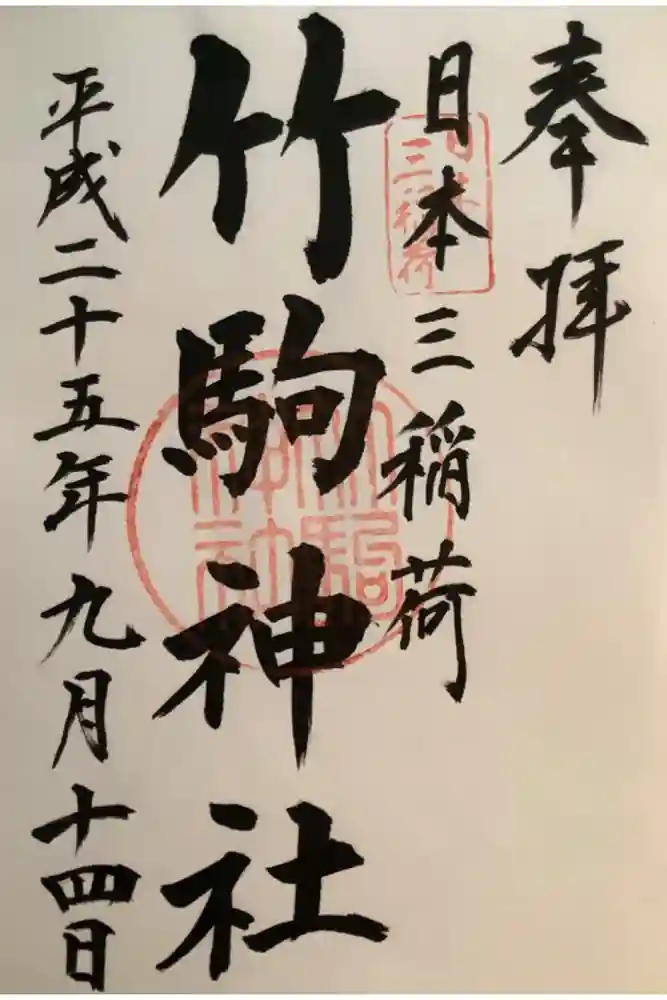 奉拝
日本三稲荷
日本三稲荷
竹駒神社
竹駒神社
平成二十五年九月十四日